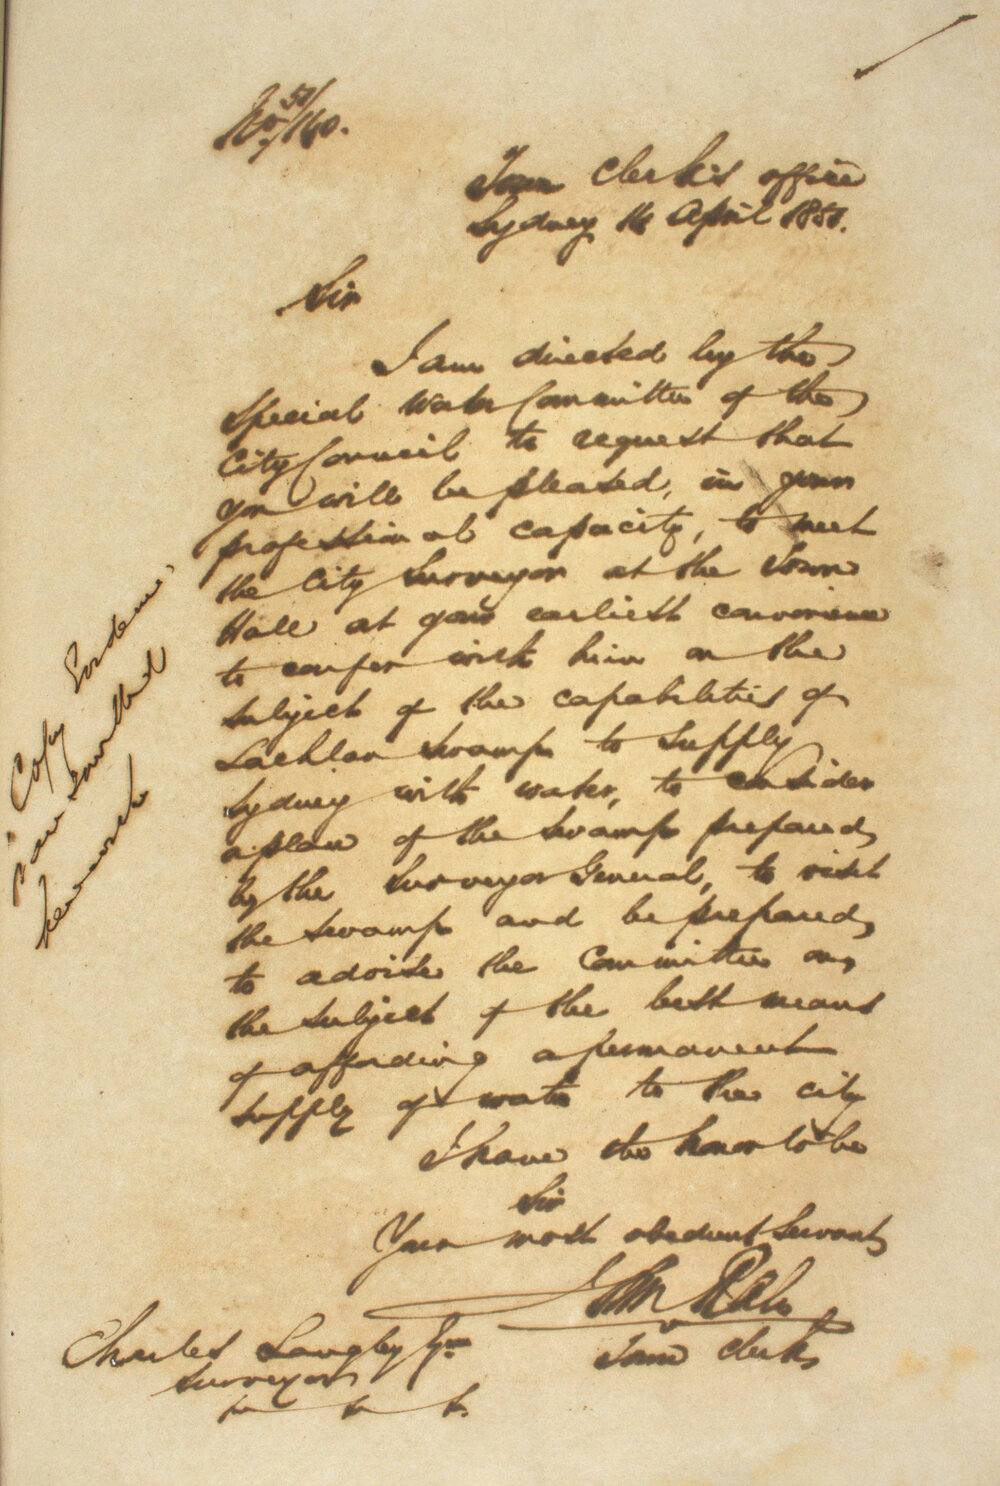 No 51/160.
Town Clerk's office
Sydney 14 April 1851.
Sir
I am directed by the
Special Water Committee of the
City Council to request that
you will be pleased, in your
professional capacity, to meet
the City Surveyor at the Town
Hall at your earliest convenience
to confer with him on the
subject of the capabilities of
Lachlan Swamp to supply
Sydney with water, to consider
a plan of the swamp prepared
by the Surveyor General, to visit
the swamp and be prepared
to advise the Committee on
the subject of the best means
of affording a permanent
supply of water to the city
I have the honor to be
Sir
Your most obedient Servant
John Rae
Town Clerk
Charles Langley Esqr
Surveyor
Copy